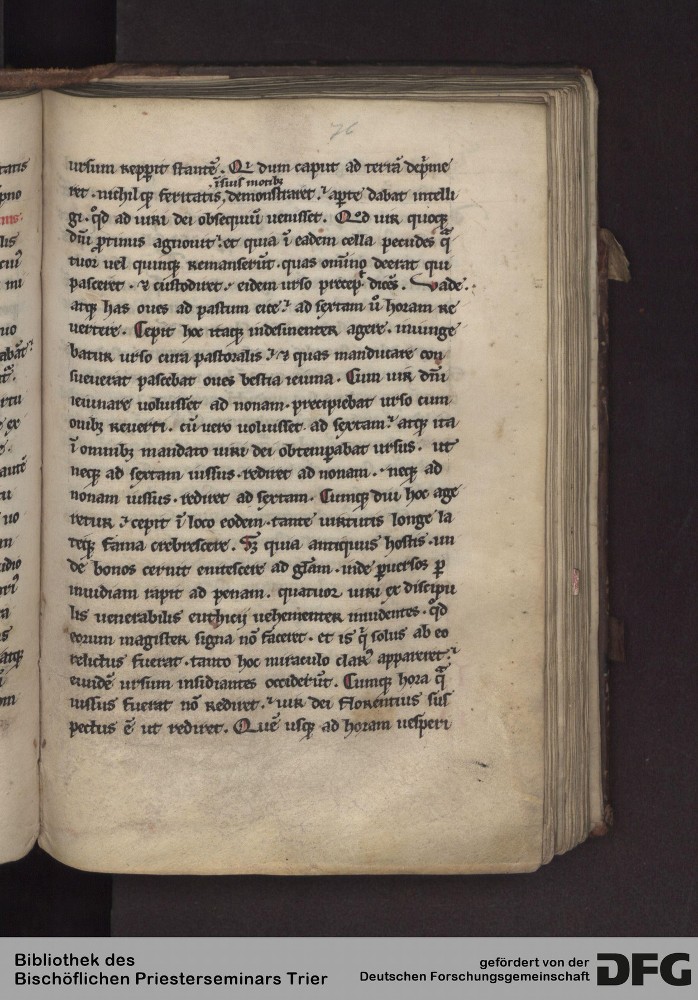 76
ursum repp̱it stantē. Qui dum caput ad terrā dep̄me
ī suis motibꝫ
ret. nichilqꝫ feritatis, demonstraret. aꝑte dabat intelli
gi. qd̄ ad uiri dei obsequiū uenisset. Qd̄ uir quoqꝫ
dn̄i ꝓtinus agnouit. et quia ī eadem cella pecudes q̄
tuor uel quinqꝫ remanserūt. quas om̄ino deerat qui
pasceret. ⁊ custodiret. eidem urso precep̄ dicēs. Vade.
atqꝫ has oues ad pastum eice. ad sextam ū horam re
uertere. Cepit hoc itaqꝫ indesinenter agere. iniunge
batur urso cura pastoralis. ⁊ quas manducare con
sueuerat pascebat oues bestia ieiuna. Cum uir dn̄i
ieiunare uoluisset ad nonam. precipiebat urso cum
ouibꝫ reuerti. cū uero uoluisset ad sextam. atqꝫ ita
ī omnibꝫ mandato uiri dei obtemꝑabat ursus. ut
neqꝫ ad sextam iussus. rediret ad nonam. neqꝫ ad
nonam iussus. rediret ad sextam. Cumqꝫ diu hoc age
retur. cepit ī loco eodem. tante uirtutis longe la
teqꝫ fama crebrescere. Sꝫ quia antiquus hostis. un
de bonos cernit enitescere ad gl̄am. inde ꝑuersos ꝑ
inuidiam rapit ad penam. quatuor uiri ex discipu
lis uenerabilis euthicij uehementer inuidentes. qd̄
eorum magister signa nō faceret. et is q̄ solus ab eo
relictus fuerat. tanto hoc miraculo clarꝰ appareret.
eiusdē ursum insidiantes occiderūt. Cumqꝫ hora q̄
iussus fuerat nō rediret. uir dei florentius sus
pectus ē ut rediret. Quē usqꝫ ad horam uesperi
Bibliothek des
Bischöflichen Priesterseminars Trier
gefördert von der
Deutschen Forschungsgemeinschaft
DFG